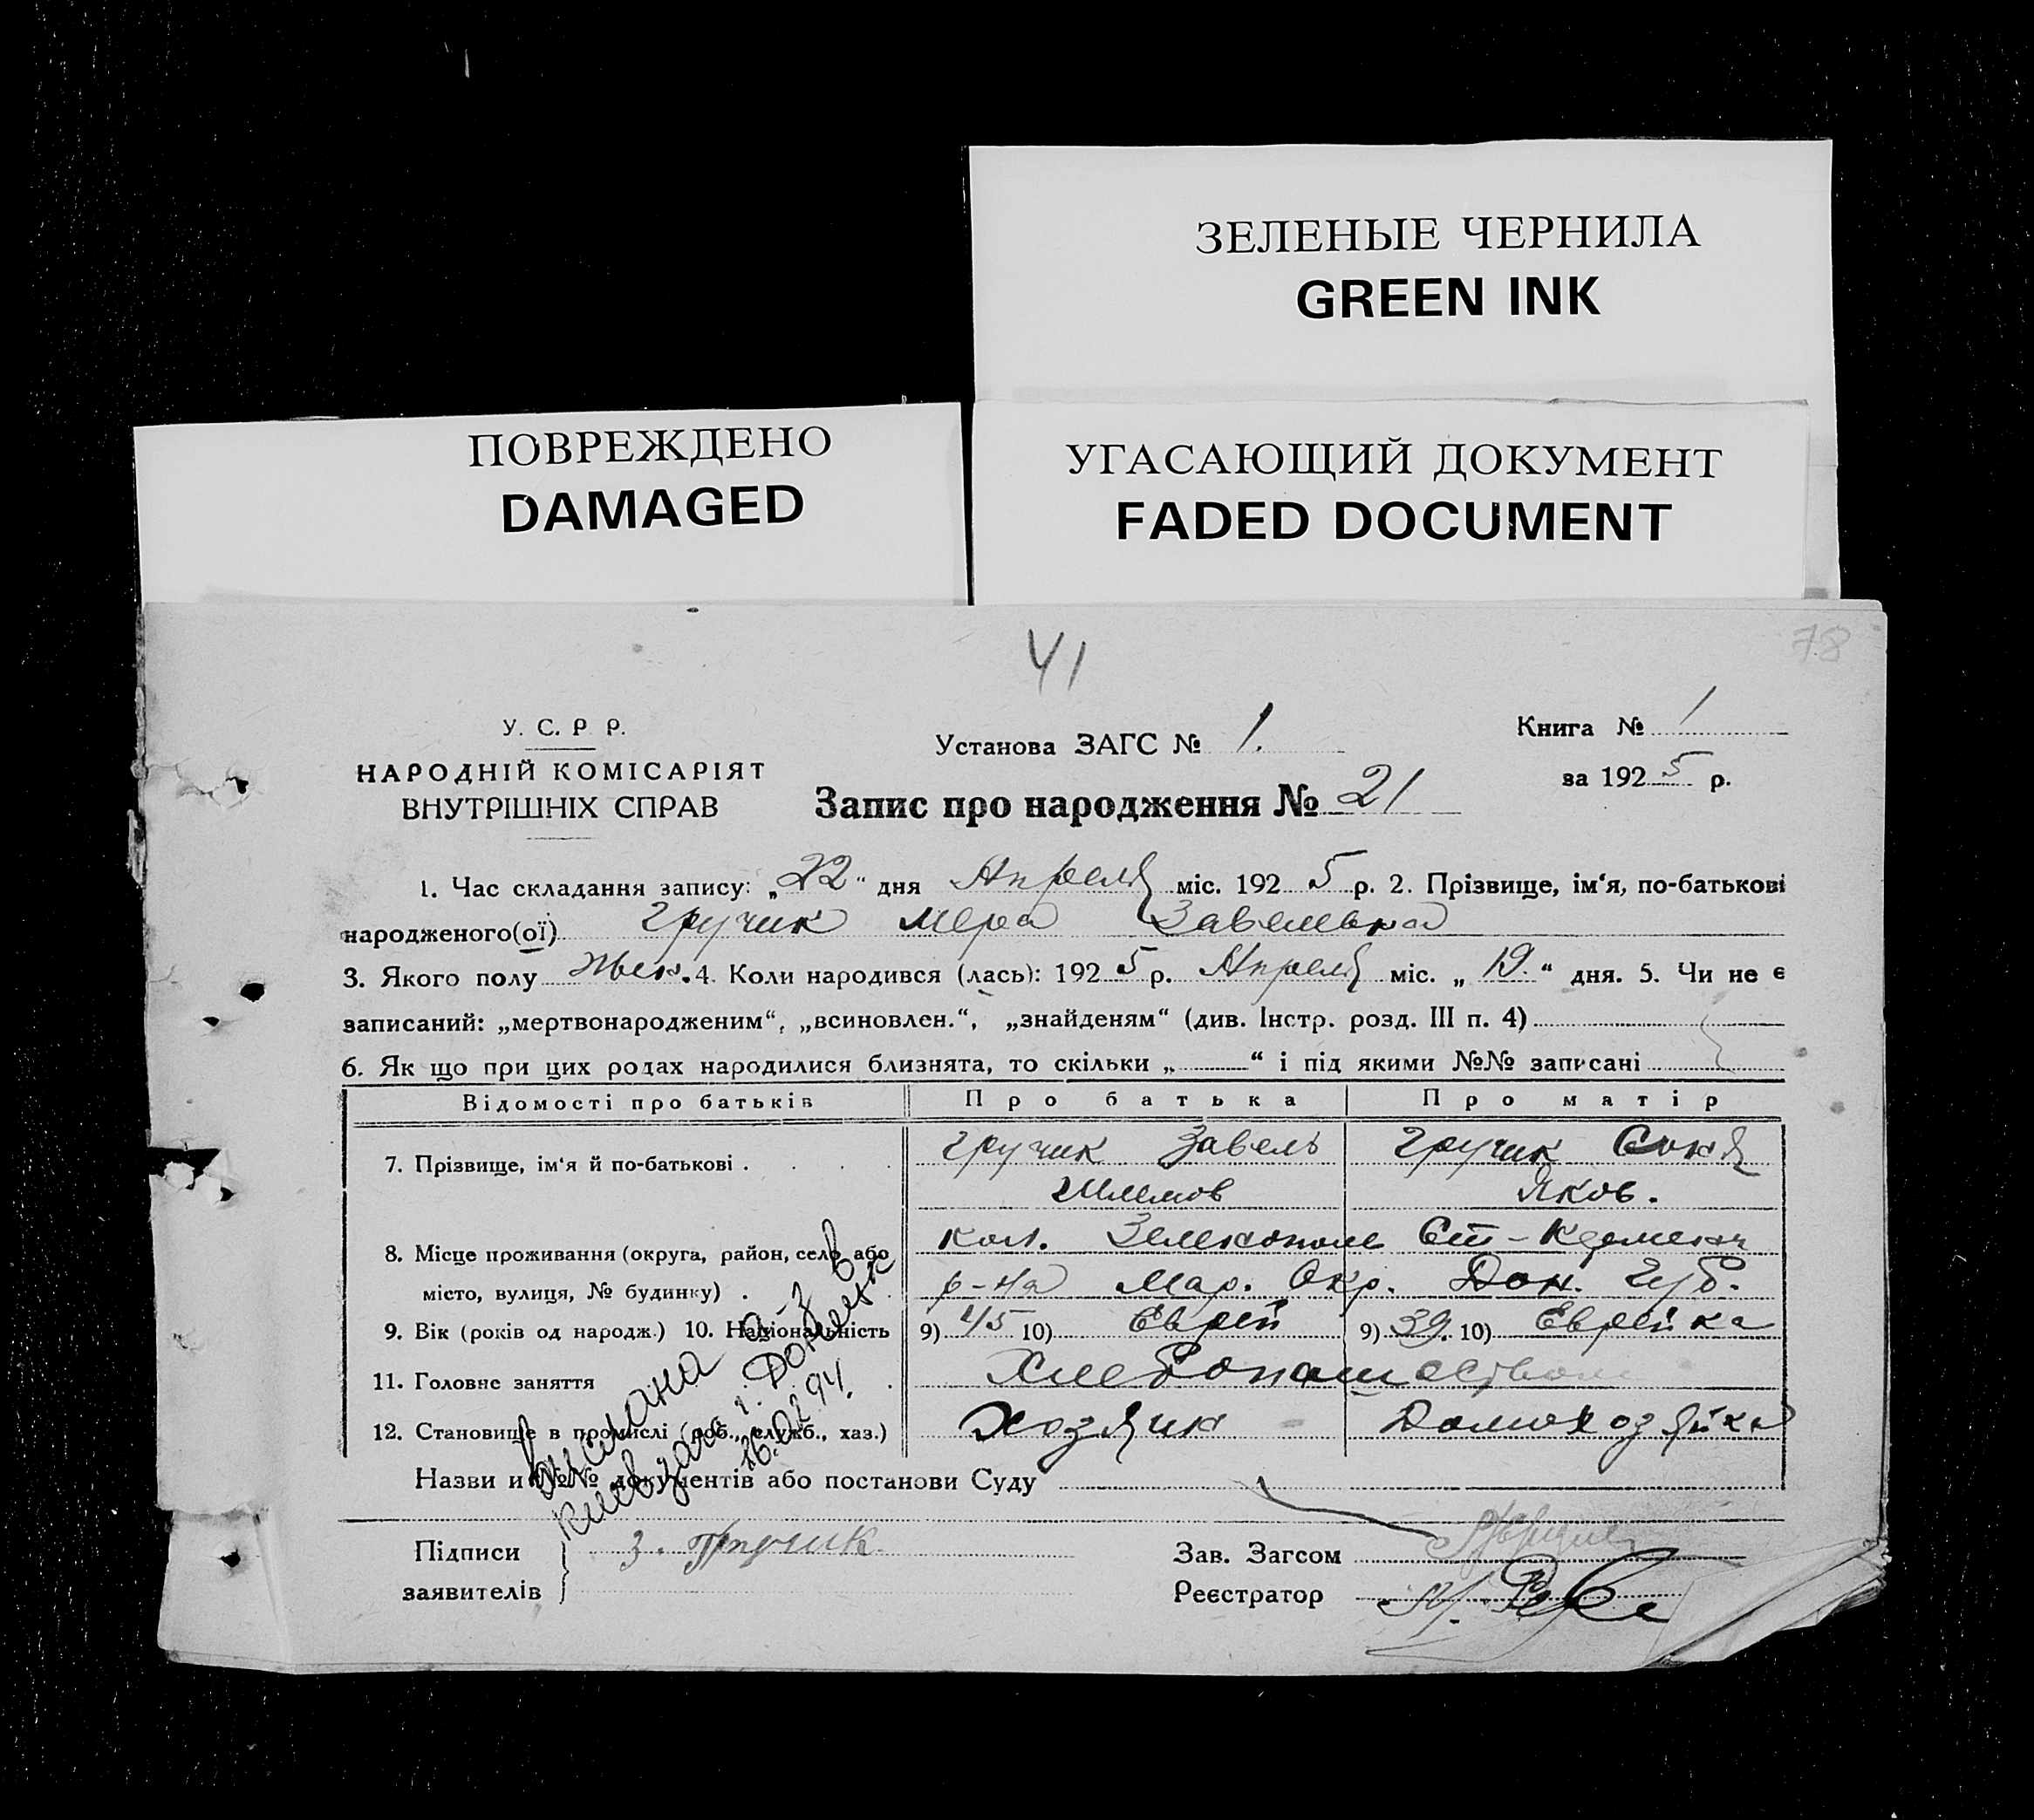 ЗЕЛЕНЫЕ ЧЕРНИЛА
GREEN INK
ПОВРЕЖДЕНО
DAMAGED
УГАСАЮЩИЙ ДОКУМЕНТ
FADED DOCUMENT
41
78
У. С. Р Р.
НАРОДНІЙ КОМІСАРІЯТ
ВНУТРІШНІХ СПРАВ
Установа ЗАГС № 1.
Запис про народження № 21
Книга № 1
за 1925 р.
1. Час складання запису: „22“ дня Апреля міс. 1925 р. 2. Прізвище, ім‘я, по-батькові
народженого(ої) Гручик Мера Завельевна
3. Якого полу жен. 4. Коли народився (лась): 1925 р. Апреля міс. „19.“ дня. 5. Чи не є
записаний: „мертвонародженим“, „всиновлен.“, „знайденям“ (див. Інстр. розд. III п. 4)
6. Як що при цих родах народилися близнята, то скільки „ “ і під якими №№ записані
Відомості про батьків Про батька Про матір
7. Прізвище, ім‘я й по-батькові . Гручик Завель Гручик Соня
Шлемов Яков.
8. Місце проживання (округа, район, село або кол. Зеленополе Ст-Кременч
місто, вулиця, № будинку) . р-на Мар. Окр. Дон. Губ.
9. Вік (років од народж.) 10. Національність 9) 45 10) Еврей 9) 39. 10) Еврейка
11. Головне заняття Хлебопашеством
12. Становище в промислі (роб., служб., хаз.) Хозяин Домохозяйка
Назви и №№ документів або постанови Суду
Выслана в
Киев загс г. Донецк
16.02.94.
Підписи З. Гручик
заявителів
Зав. Загсом
Реєстратор